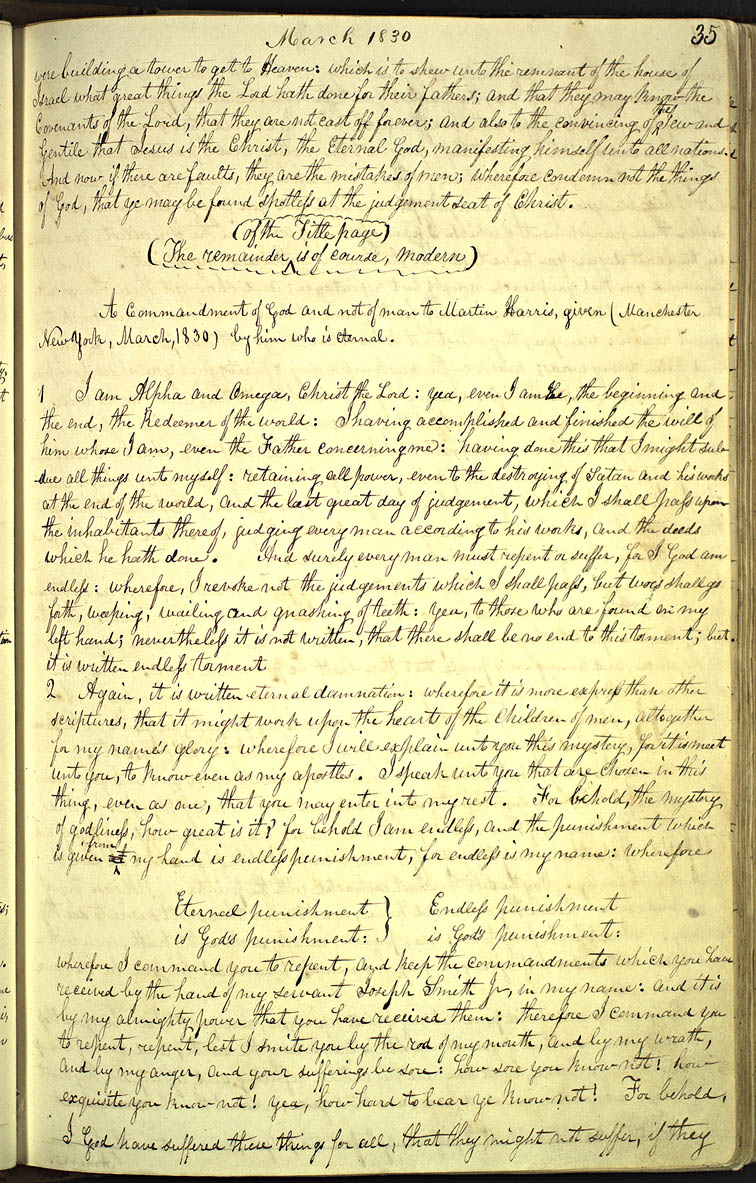 March 1830
35
were building a tower to get to Heaven: which is to shew unto the remnant of the house of
Israel what great things the Lord hath done for their fathers; and that they may know the
Covenants of the Lord, that they are not cast off forever; and also to the convincing of the Jew and
Gentile that Jesus is the Christ, the Eternal God, manifesting himself unto all nations.
And now if there are faults, they are the mistakes of men; wherefore condemn not the things
of God, that ye may be found spotless at the judgement seat of Christ.
(of the Title page)
(The remainder is of course, modern)
A Commandment of God and not of man to Martin Harris, given (Manchester
New York, March, 1830) by him who is eternal.
1 I am Alpha and Omega, Christ the Lord: yea, even I am He, the beginning and
the end, the Redeemer of the world: I having accomplished and finished the will of
him whose I am, even the Father concerning me: having done this that I might sub-
due all things unto myself: retaining all power, even to the destroying of Satan and his works
at the end of the world, and the last great day of judgement, which I shall pass upon
the inhabitants thereof, judging every man according to his works, and the deeds
which he hath done. And surely every man must repent or suffer, for I God am
endless: wherefore, I revoke not the judgements which I shall pass, but woes shall go
forth, weeping, wailing and gnashing of teeth: yea, to those who are found on my
left hand; nevertheless it is not written, that there shall be no end to this torment; but
it is written endless torment
2 Again, it is written eternal damnation: wherefore it is more express than other
scriptures, that it might work upon the hearts of the children of men, altogether
for my name's glory: wherefore I will explain unto you this mystery, for it is meet
unto you, to know even as my apostles. I speak unto you that are chosen in this
thing, even as one, that you may enter into my rest. For behold, the mystery
of godliness, how great is it? for behold I am endless, and the punishment which
is given from my hand is endless punishment, for endless is my name: wherefore
Eternal punishment } Endless punishment
is God's punishment: is God's punishment:
wherefore I command you to repent, and keep the commandments which you have
received by the hand of my servant Joseph Smith Jr, in my name: and it is
by my almighty power that you have received them: therefore I command you
to repent, repent, lest I smite you by the rod of my mouth, and by my wrath,
and by my anger, and your sufferings be sore: how sore you know not! how
exquisite you know not! yea, how hard to bear ye know not! For behold,
I God have suffered these things for all, that they might not suffer, if they